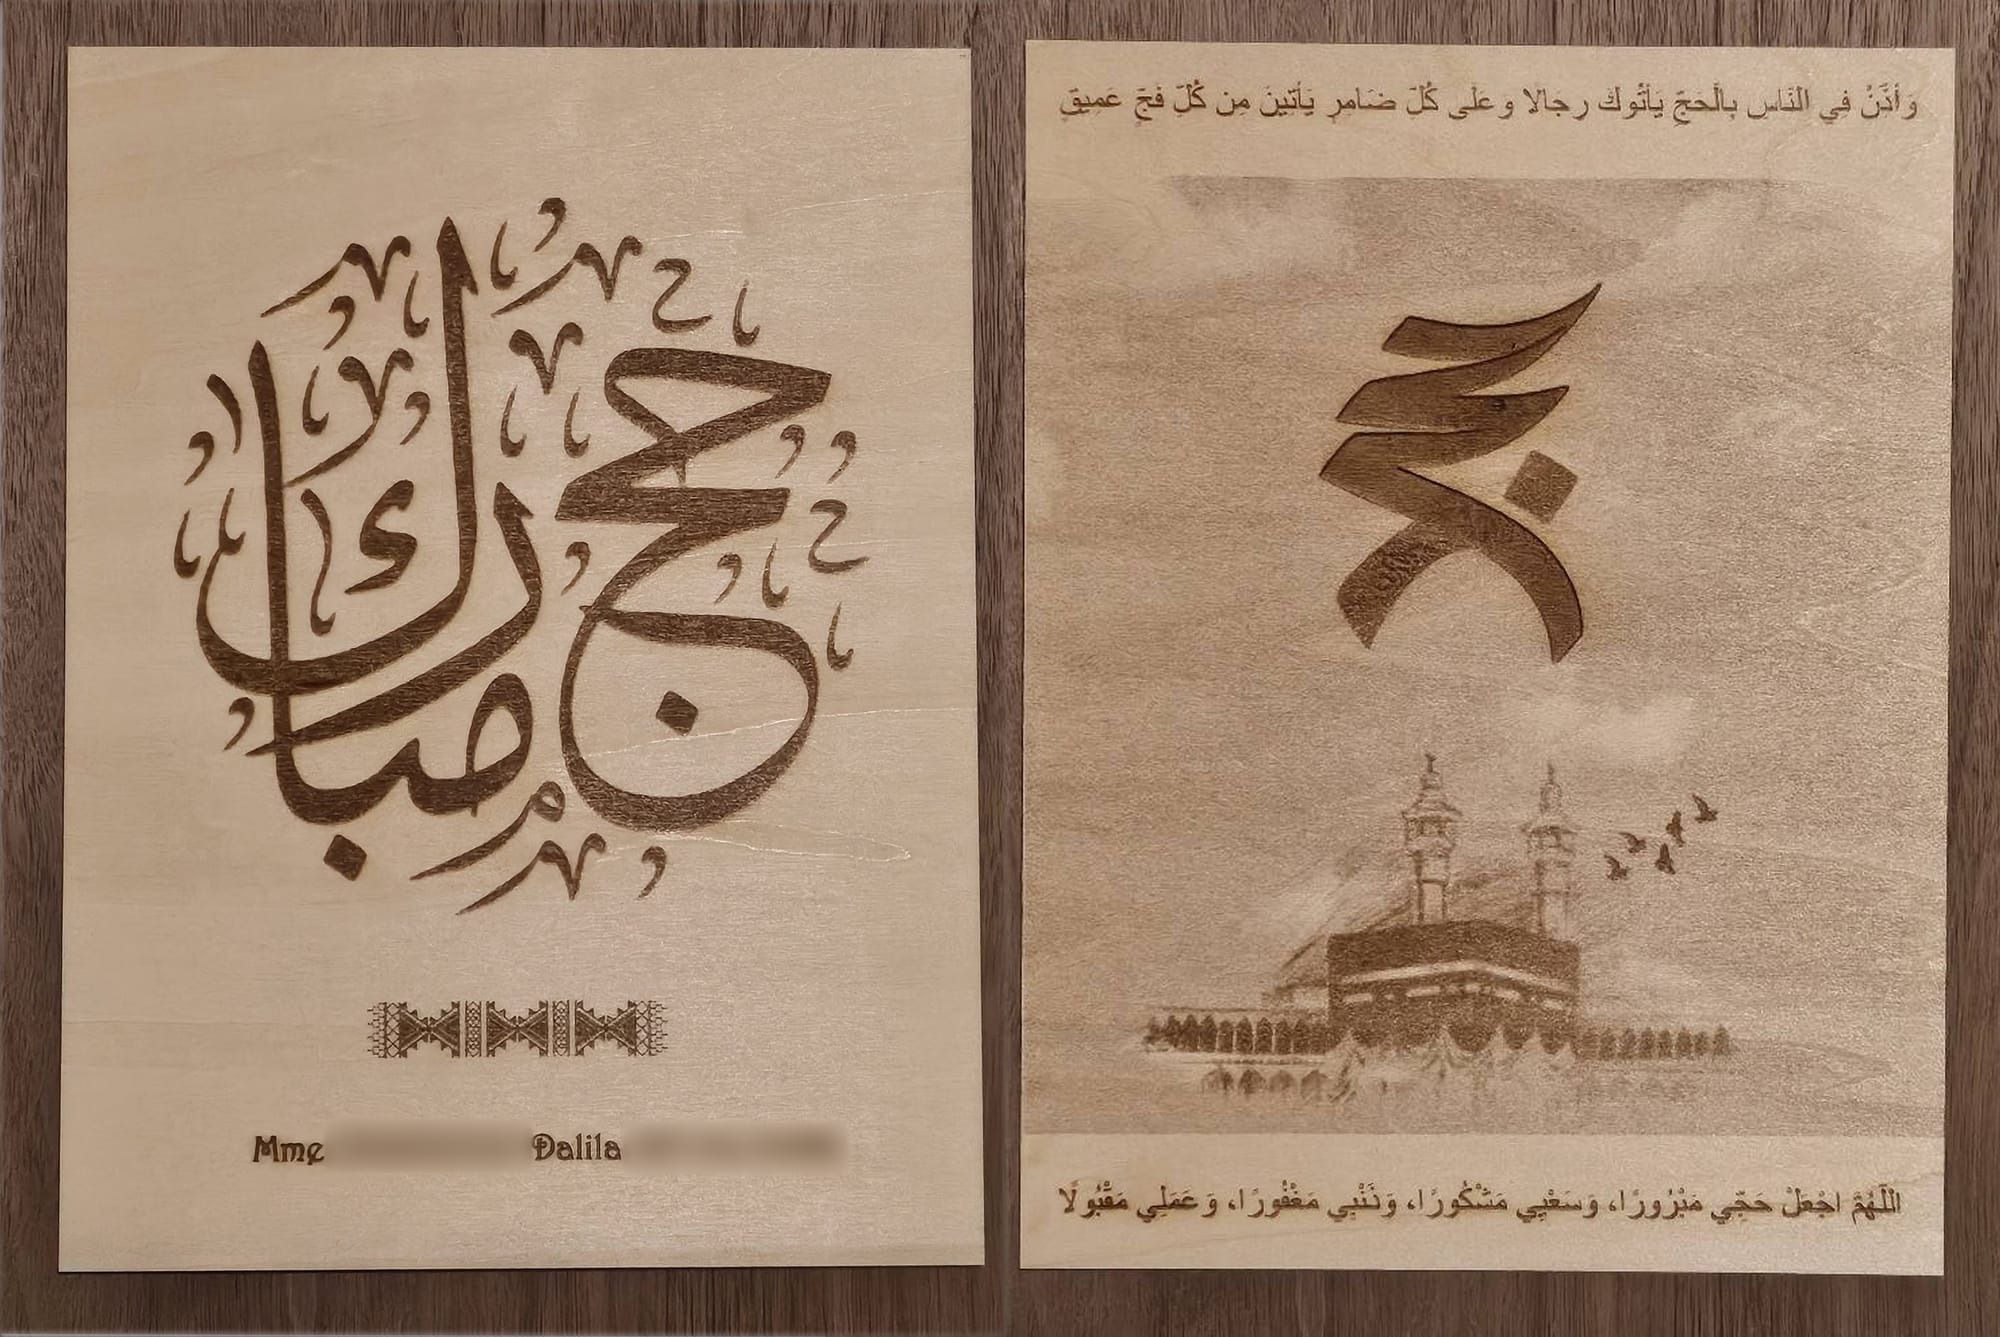 حج مبارك
Mme Dalila
وَأَذِّنْ فِي النَّاسِ بِالْحَجِّ يَأْتُوكَ رِجَالا وعَلَى كُلِّ ضَامِرٍ يَأْتِينَ مِن كُلِّ فَجٍّ عَمِيقٍ
حج
اللَّهُمَّ اجْعَلْ حَجِّي مَبْرُورًا، وَسَعْيِي مَشْكُورًا، وَذَنْبِي مَغْفُورًا، وَعَمَلِي مَقْبُولًا